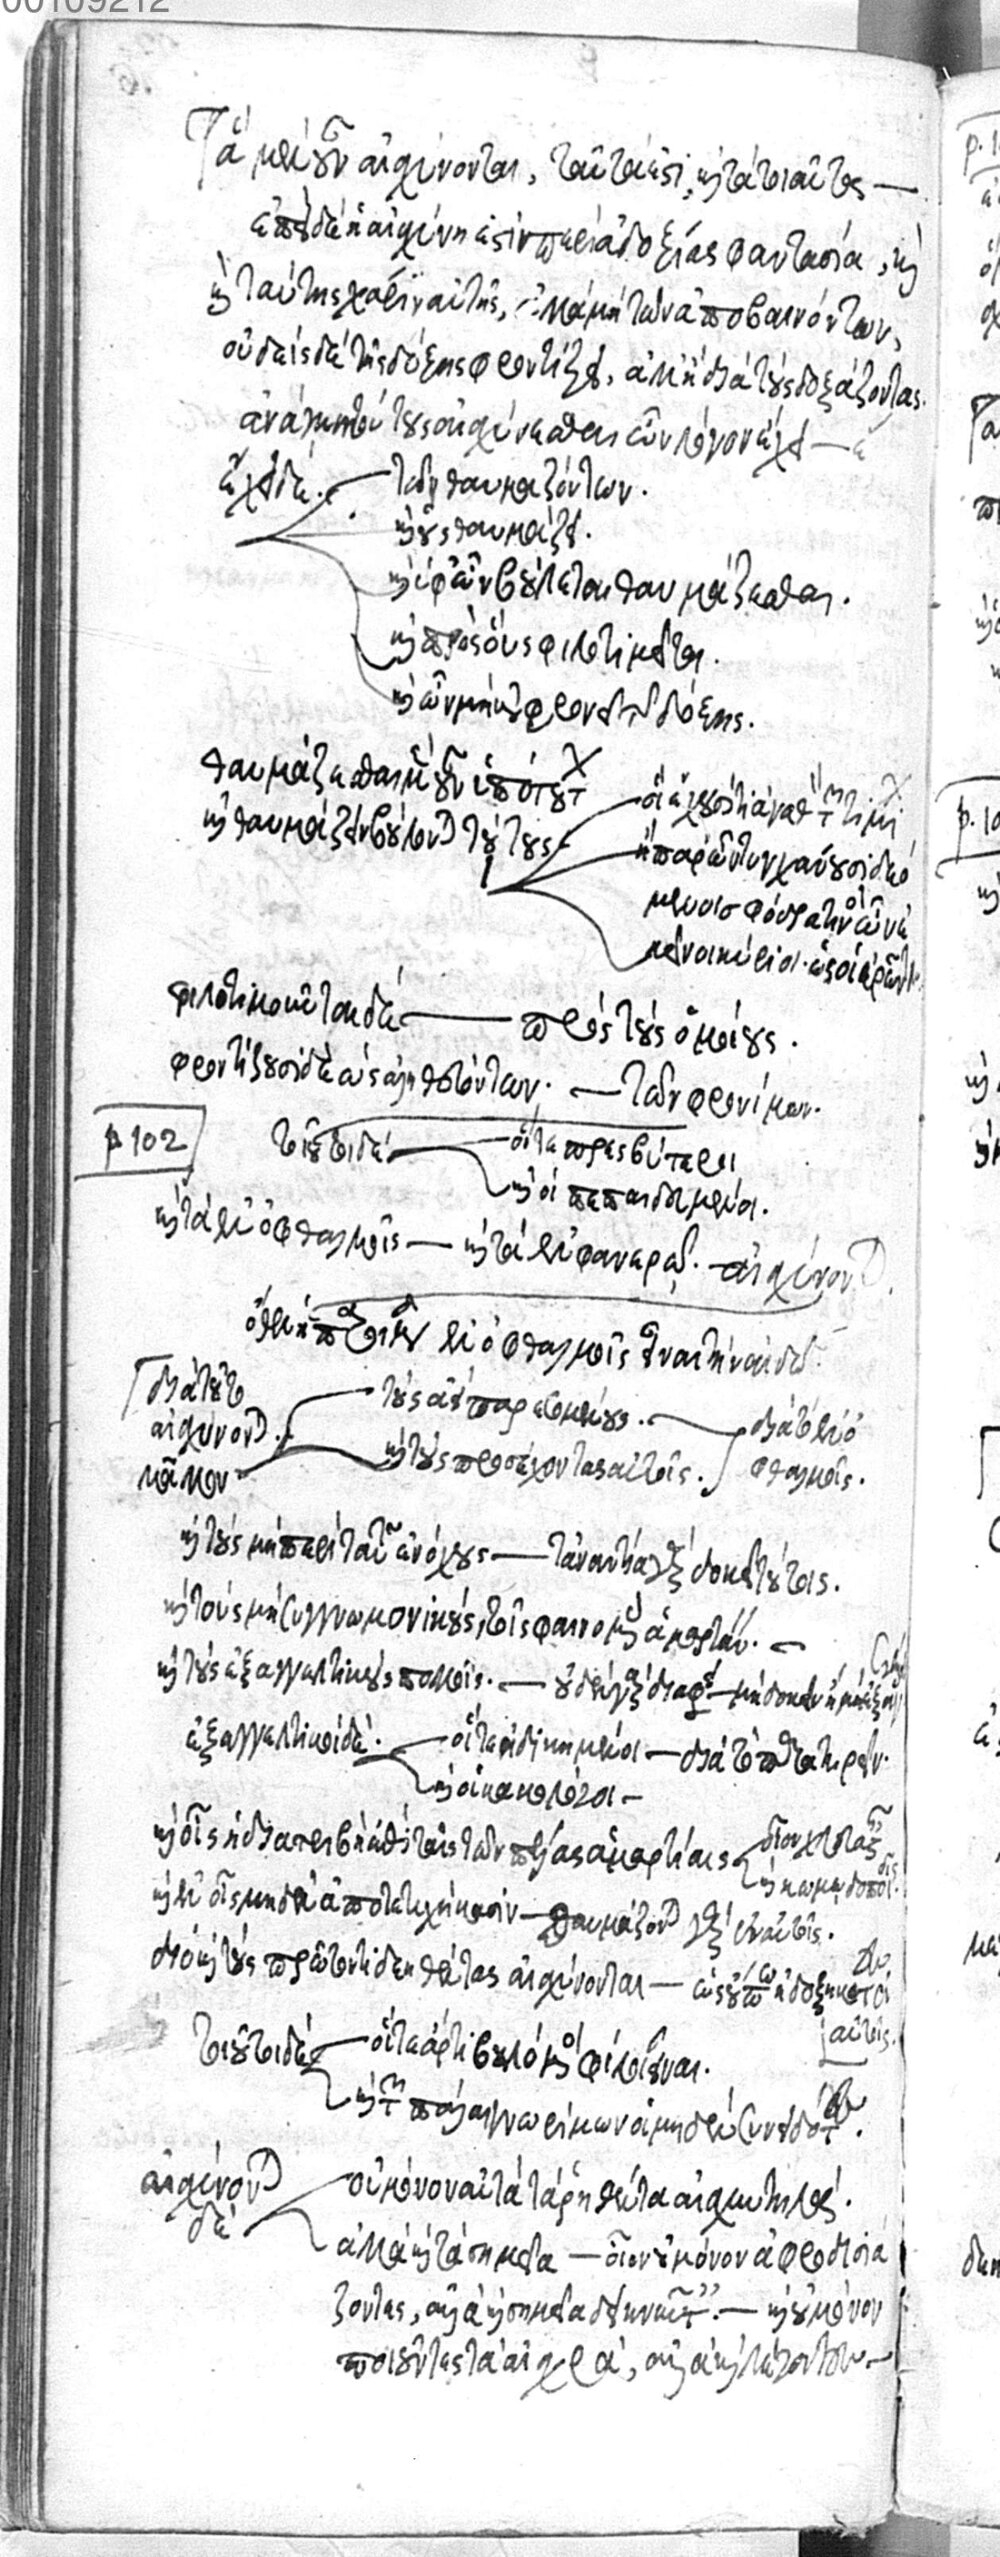 00109212
Ἃ μὲν οὖν αἰσχύνονται, ταῦτά ἐστι, καὶ τὰ τοιαῦτα —
ἐπεὶ δὲ ἡ αἰσχύνη ἐστὶν περὶ ἀδοξίας φαντασία, καὶ
καὶ ταύτης χάριν αὐτῆς, ἀλλὰ μὴ τῶν ἀποβαινόντων,
οὐδεὶς δὲ τῆς δόξης φροντίζει, ἀλλ' ἢ διὰ τοὺς δοξάζοντας.
ἀνάγκη τούτους αἰσχύνεσθαι ὧν λόγον ἔχει —
ἔχει δὲ.
τῶν θαυμαζόντων.
καὶ οὓς θαυμάζει.
καὶ ὑφ' ὧν βούλεται θαυμάζεσθαι.
καὶ πρὸς οὓς φιλοτιμεῖται.
καὶ ὧν μὴ καταφρονεῖ τῆς δόξης.
θαυμάζεσθαι μὲν οὖν ὑπὸ τούτων
καὶ θαυμάζειν βούλονται τούτους
ὅσοι ἔχουσί τι ἀγαθὸν τῶν τιμίων
ἢ παρ' ὧν τυγχάνουσι δεό
μενοι σφόδρα τινὸς ὧν ἐ
κεῖνοι κύριοι. ὡς οἱ ἐρῶντες
φιλοτιμοῦνται δὲ — πρὸς τοὺς ὁμοίους.
φροντίζουσι δὲ ὡς ἀληθευόντων. — τῶν φρονίμων.
p 102
τοιοῦτοι δὲ
οἵ τε πρεσβύτεροι
καὶ οἱ πεπαιδευμένοι.
καὶ τὰ ἐν ὀφθαλμοῖς — καὶ τὰ ἐν φανερῷ. αἰσχύνονται
ὅθεν καὶ παροιμία ἐν ὀφθαλμοῖς εἶναι τὴν αἰδῶ.
διὰ τοῦτο
αἰσχύνονται
μᾶλλον
τοὺς ἀεὶ παρεσομένους.
καὶ τοὺς προσέχοντας αὐτοῖς.
διὰ τὸ ἐν ὀ
φθαλμοῖς.
καὶ τοὺς μὴ περὶ ταῦτα ἐνόχους — τἀναντία γὰρ δοκεῖ τούτοις.
καὶ τοὺς μὴ συγγνωμονικούς, τοῖς φαινομένοις ἁμαρτάνειν.
καὶ τοὺς ἐξαγγελτικοὺς πολλοῖς. — οὐδὲν γὰρ διαφέρει μὴ δοκεῖν ἢ μὴ ἐξαγγέλλειν
ἐξαγγελτικοὶ δὲ.
οἵ τε ἠδικημένοι — διὰ τὸ παρατηρεῖν.
καὶ οἱ κακολόγοι —
καὶ οἷς ἡ διατριβὴ ἐπὶ ταῖς τῶν πέλας ἁμαρτίαις
οἷον χλευασταῖς
καὶ κωμῳδοποιοῖς.
καὶ ἐν οἷς μηδὲν ἀποτετυχήκασιν — θαυμαζόμενοι γὰρ ἐν αὐτοῖς.
διὸ καὶ τοὺς πρῶτόν τι δεηθέντας αἰσχύνονται — ὡς οὔπω ἠδοξηκότες ἐν
αὐτοῖς.
τοιοῦτοι δὲ
οἵ τε ἄρτι βουλόμενοι φίλοι εἶναι.
καὶ τῶν πάλαι γνωρίμων οἱ μηδὲν συνειδότες.
αἰσχύνονται
δὲ
οὐ μόνον αὐτὰ τὰ ῥηθέντα αἰσχυντηλά.
ἀλλὰ καὶ τὰ σημεῖα — οἷον οὐ μόνον ἀφροδισιά
ζοντες, ἀλλὰ καὶ σημεῖα — καὶ οὐ μόνον
ποιοῦντες τὰ αἰσχρά, ἀλλὰ καὶ λέγοντες —